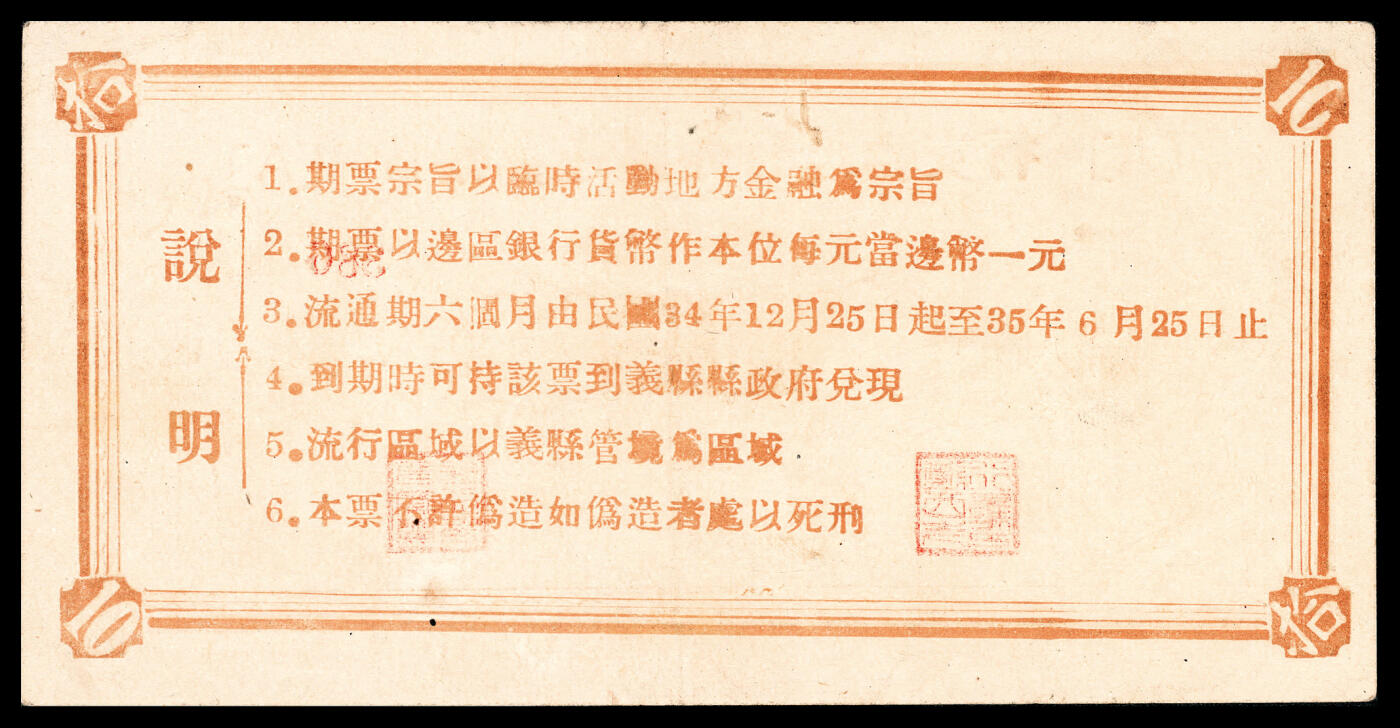 拾
10
說明
1.期票宗旨以臨時活動地方金融爲宗旨
2.期票以邊區銀行貨幣作本位每元當邊幣一元
3.流通期六個月由民國34年12月25日起至35年6月25日止
4.到期時可持該票到義縣縣政府兌現
5.流行區域以義縣管境爲區域
6.本票不許僞造如僞造者處以死刑
10
拾